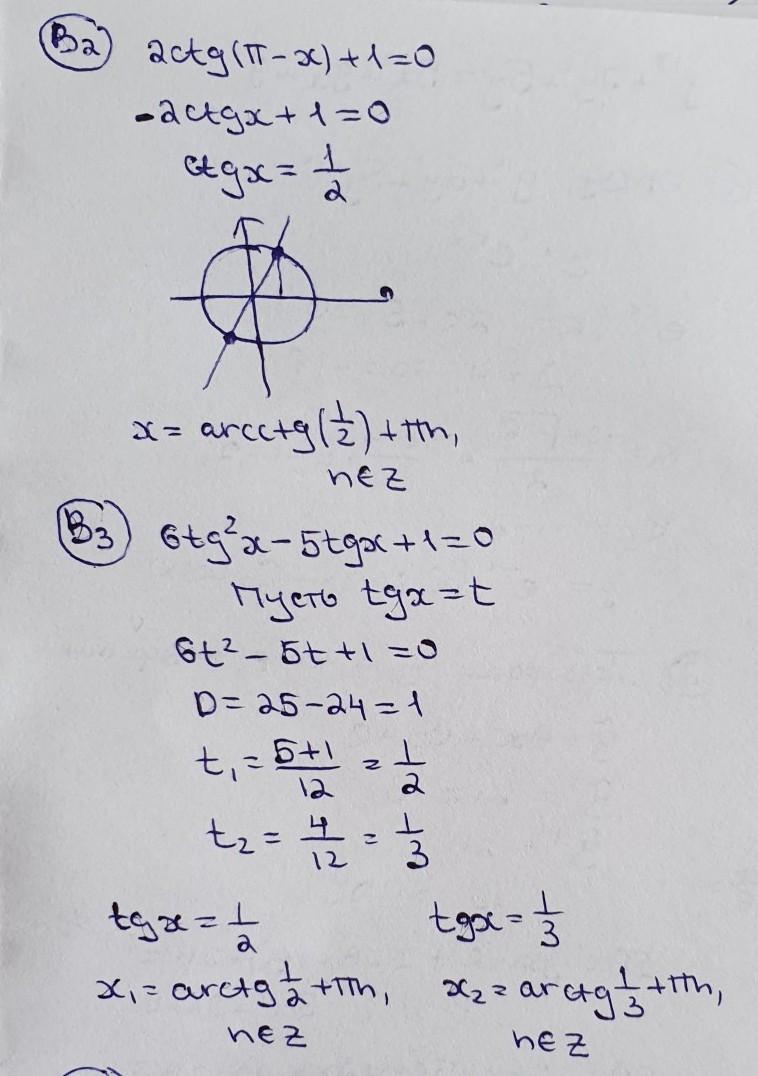 B2 2ctg(π-x)+1=0
-2ctgx+1=0
ctgx=1/2
x= arcctg(1/2)+πn,
n∈Z
B3 6tg²x-5tgx+1=0
Пусть tgx=t
6t²-5t+1=0
D=25-24=1
t₁=5+1/12=1/2
t₂=4/12=1/3
tgx=1/2 tgx=1/3
x₁=arctg1/2+πn, x₂=arctg1/3+πn,
n∈Z n∈Z